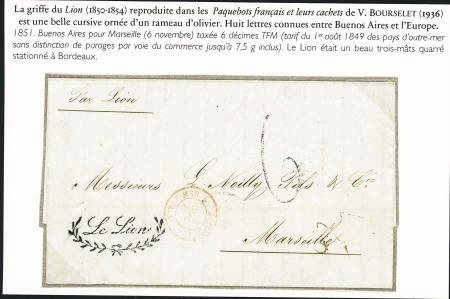 La griffe du Lion (1850-1854) reproduite dans les Paquebots français et leurs cachets de V. BOURSELET (1936)
est une belle cursive ornée d'un rameau d'olivier. Huit lettres connues entre Buenos Aires et l'Europe.
1851. Buenos Aires pour Marseille (6 novembre) taxée 6 décimes TFM (tarif du 1er août 1849 des pays d'outre-mer
sans distinction de parages par voie du commerce jusqu'à 7,5 g inclus). Le Lion était un beau trois-mâts quarré
stationné à Bordeaux.
Par Lion
Messieurs L. Noilly Fils & Cie
Le Lion
Marseille